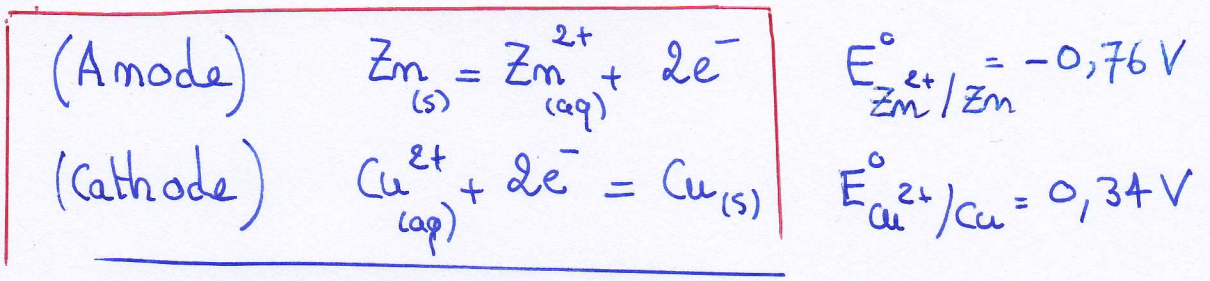 (Anode) Zn(s) = Zn²⁺(aq) + 2e⁻ E°Zn²⁺/Zn = -0,76 V
(Cathode) Cu²⁺(aq) + 2e⁻ = Cu(s) E°Cu²⁺/Cu = 0,34 V